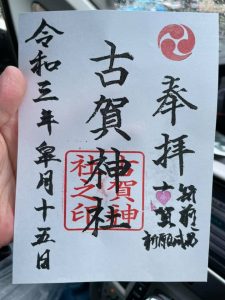 奉拝
古賀神社
古賀神
社之印
令和三年皐月十五日